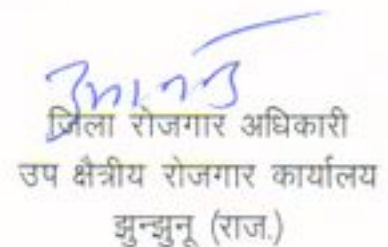 जिला रोजगार अधिकारी
उप क्षैत्रीय रोजगार कार्यालय
झुन्झुनू (राज.)